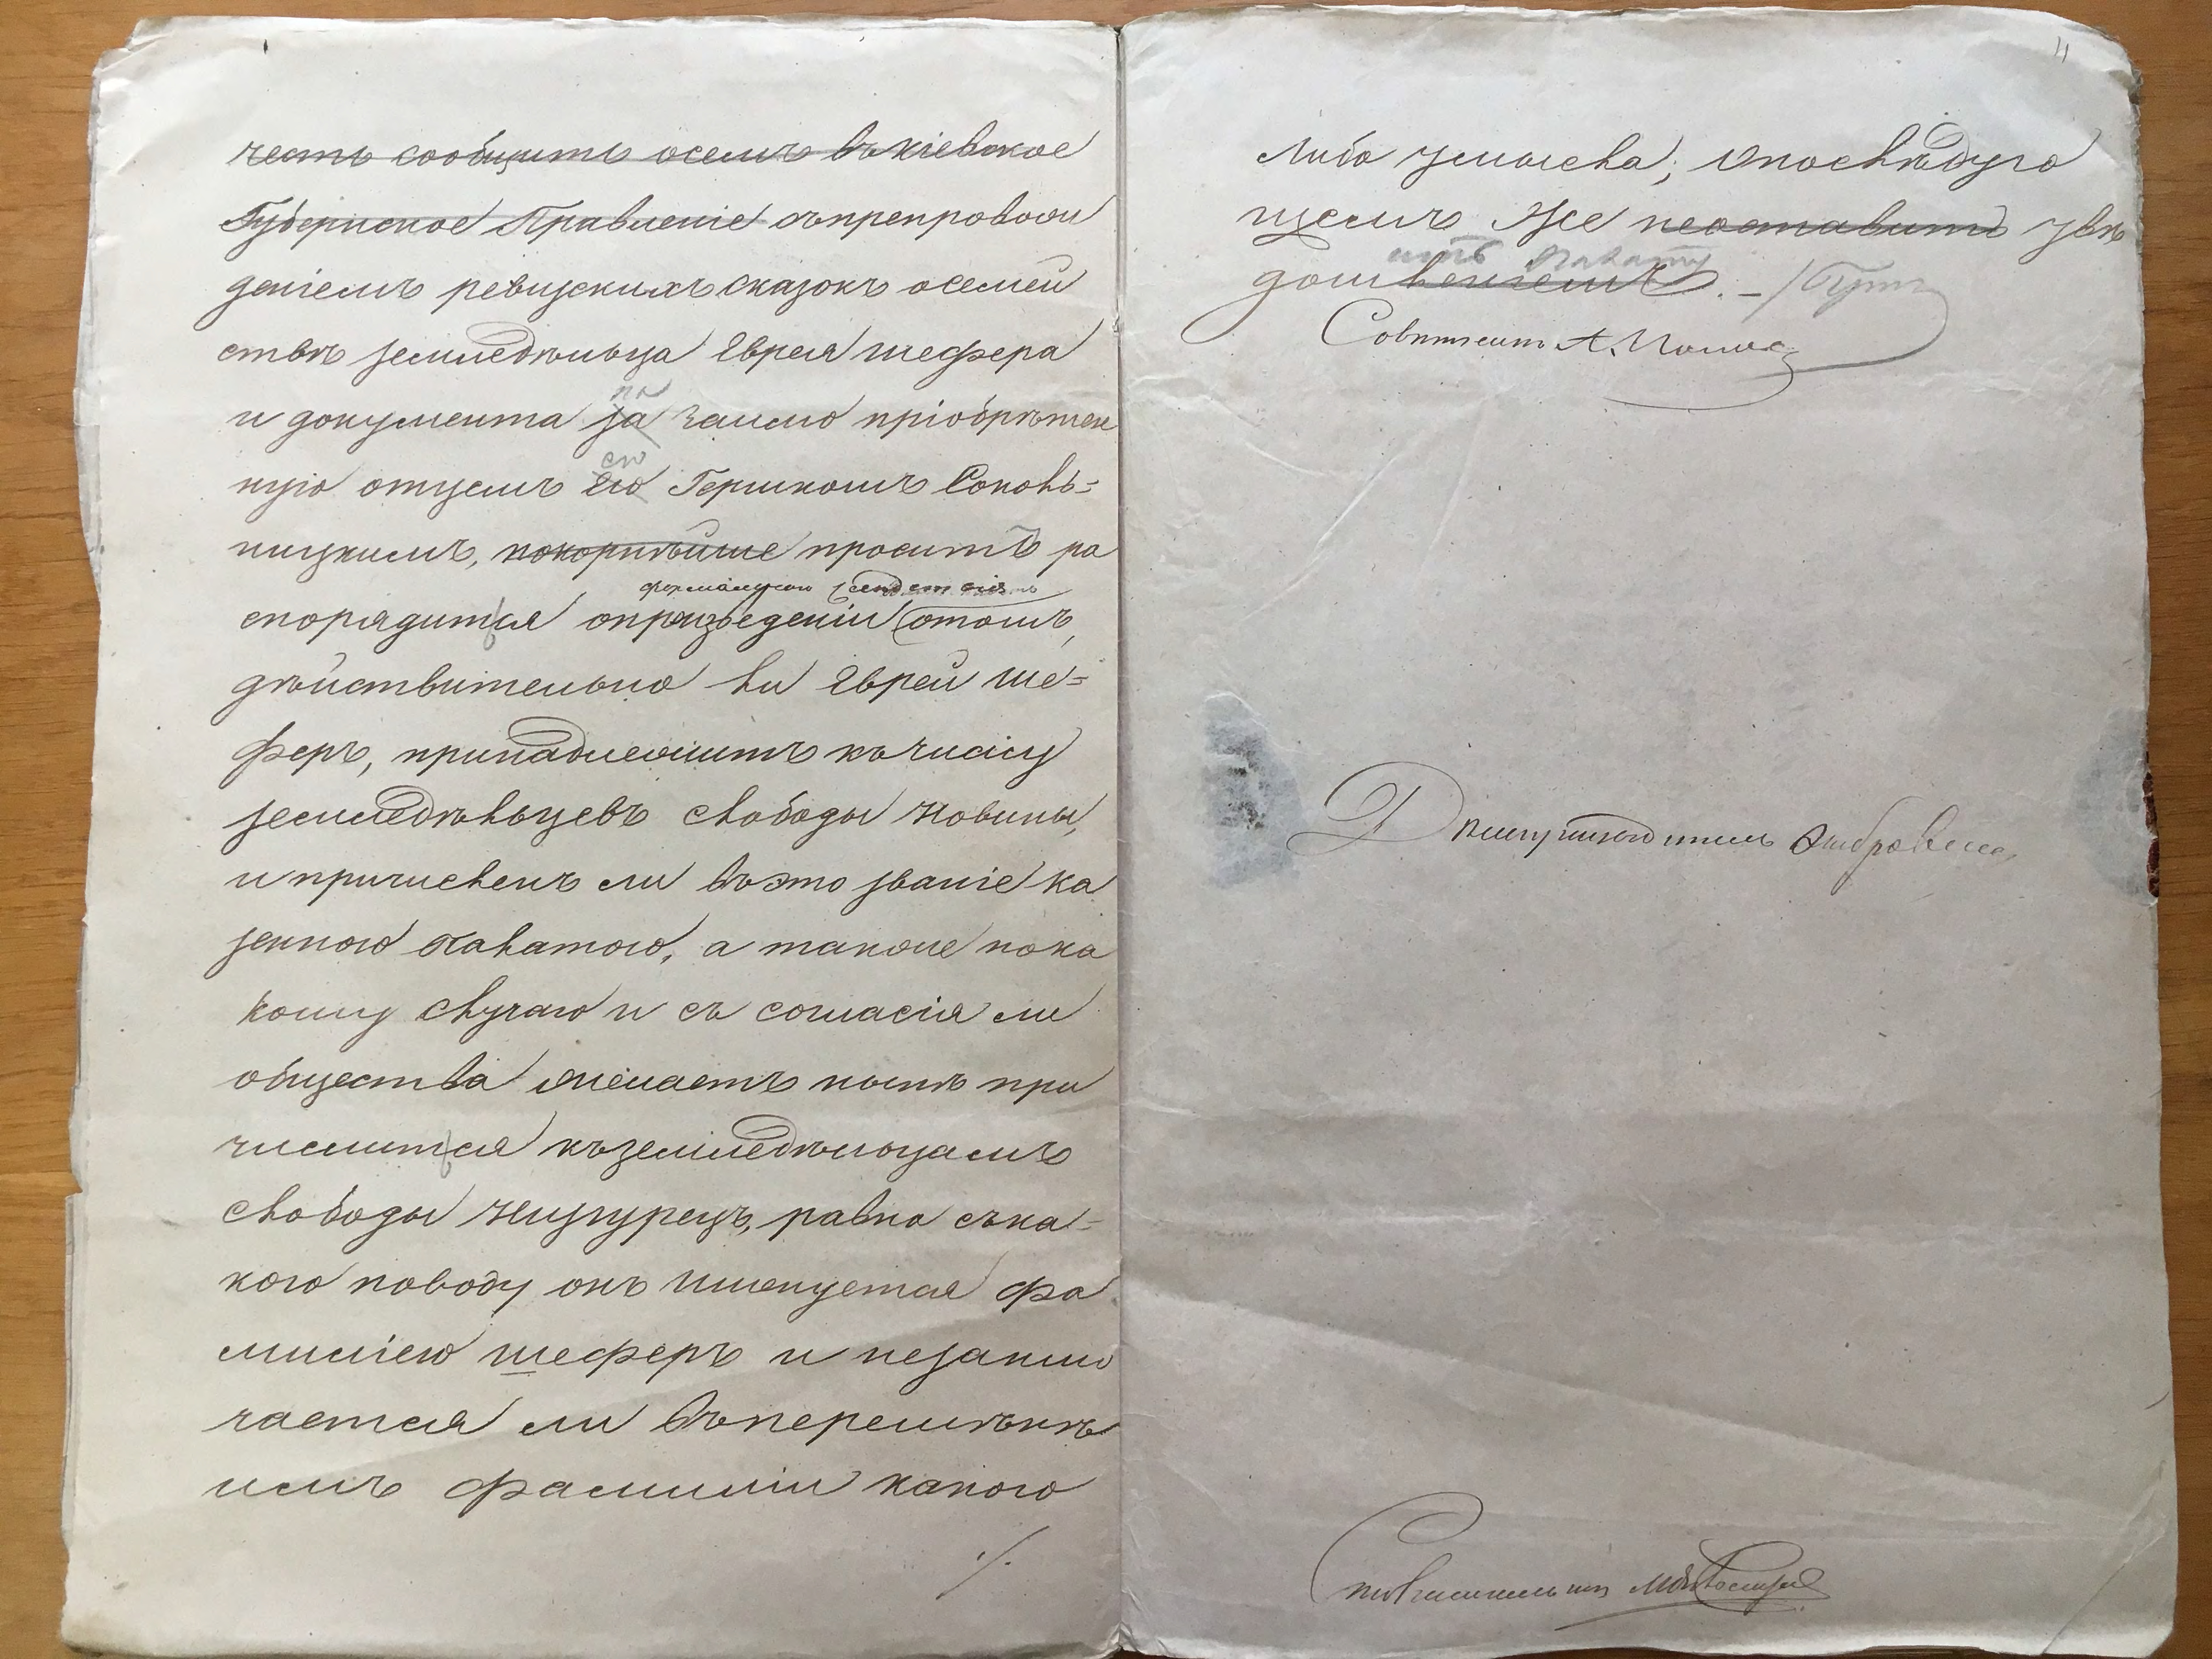 честь сообщить осемъ въ кіевское
Губернское Правленіе съпрепровож
деніемъ ревизскихъ сказокъ осемей
ствѣ земледѣльца Еврея шефера
на
и документа за землю пріобрѣтен
его
ную отцемъ его Гершкомъ Соколь=
ницкимъ, покорнѣйше проситъ ра
формальнаго
спорядится опроизведеніи отомъ,
дѣйствительно ли Еврей ше=
феръ, принадлежитъ къ числу
земледѣльцевъ слободы Новины,
и причисленъ ли въ это званіе ка
зенною Палатою, а также пока
кому случаю и съ согласія ли
общества желаетъ нынѣ при
числится къземледѣльцамъ
слободы чемуурецъ, равно съка=
кого поводу онъ именуется фа
миліею шеферъ и незаклю
чается ли въперемѣнѣ
имъ фамиліи какого
./.
11
либо умысла; опослѣдую
щемъ же неоставить увѣ
ить Палату
домленіемъ. –
Совѣтникъ А.
Дѣлопроизводитель